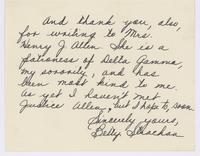 And thank you, also,
for writing to Mrs.
Henry J. Allen. She is a
patroness of Delta Gamma,
my sorority, and has
been most kind to me.
As yet I haven't met
Justice Allen, but I hope to, soon.
Sincerely yours,
Betty Strachan